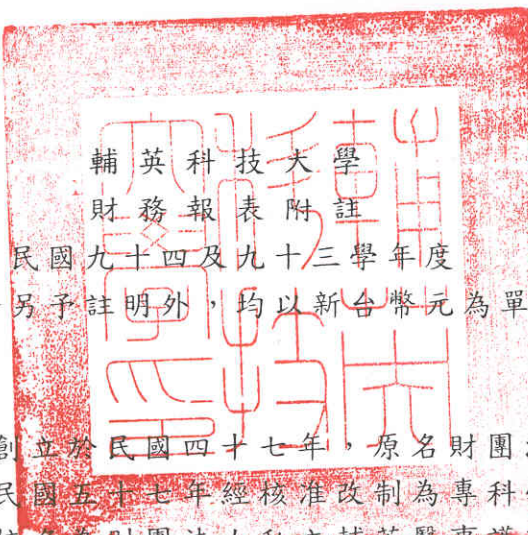 輔英科技大學
財務報表附註
民國九十四及九十三學年度
另予註明外，均以新台幣元為單
創立於民國四十七年，原名財團
民國五十七年經核准改制為專科